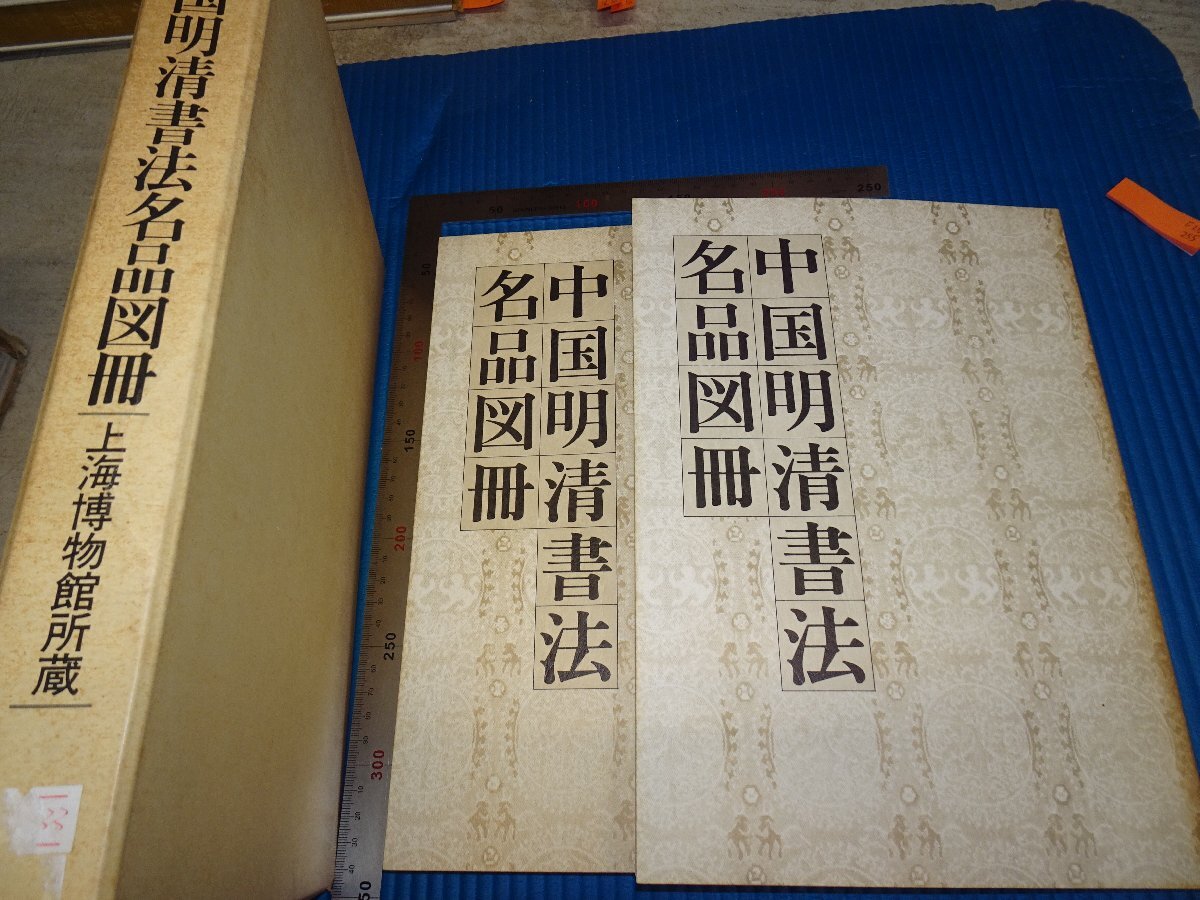 国明清書法名品図冊
上海博物館所蔵
1991
中国明清書法
名品図冊
中国明清書法
名品図冊
50
100
150
200
250
50
100
150
200
250
300
50